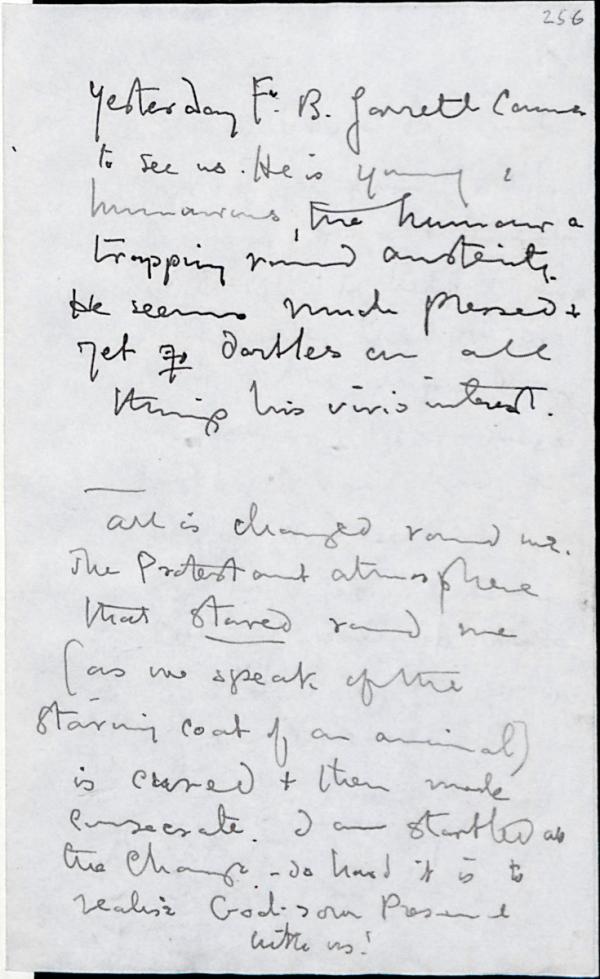 256
Yesterday Fr. B. Jarrett came
to see us. He is young &
humourous, the humour a
trapping round austerity.
He seems much pressed &
yet dartles on all
things his vivid interest.
All is changed round me.
The Protestant atmosphere
that stared round me
(as we speak of the
staring coat of an animal)
is cursed & then made
consecrate. I am startled at
the change - so hard it is to
realise God's own Presence
with us!